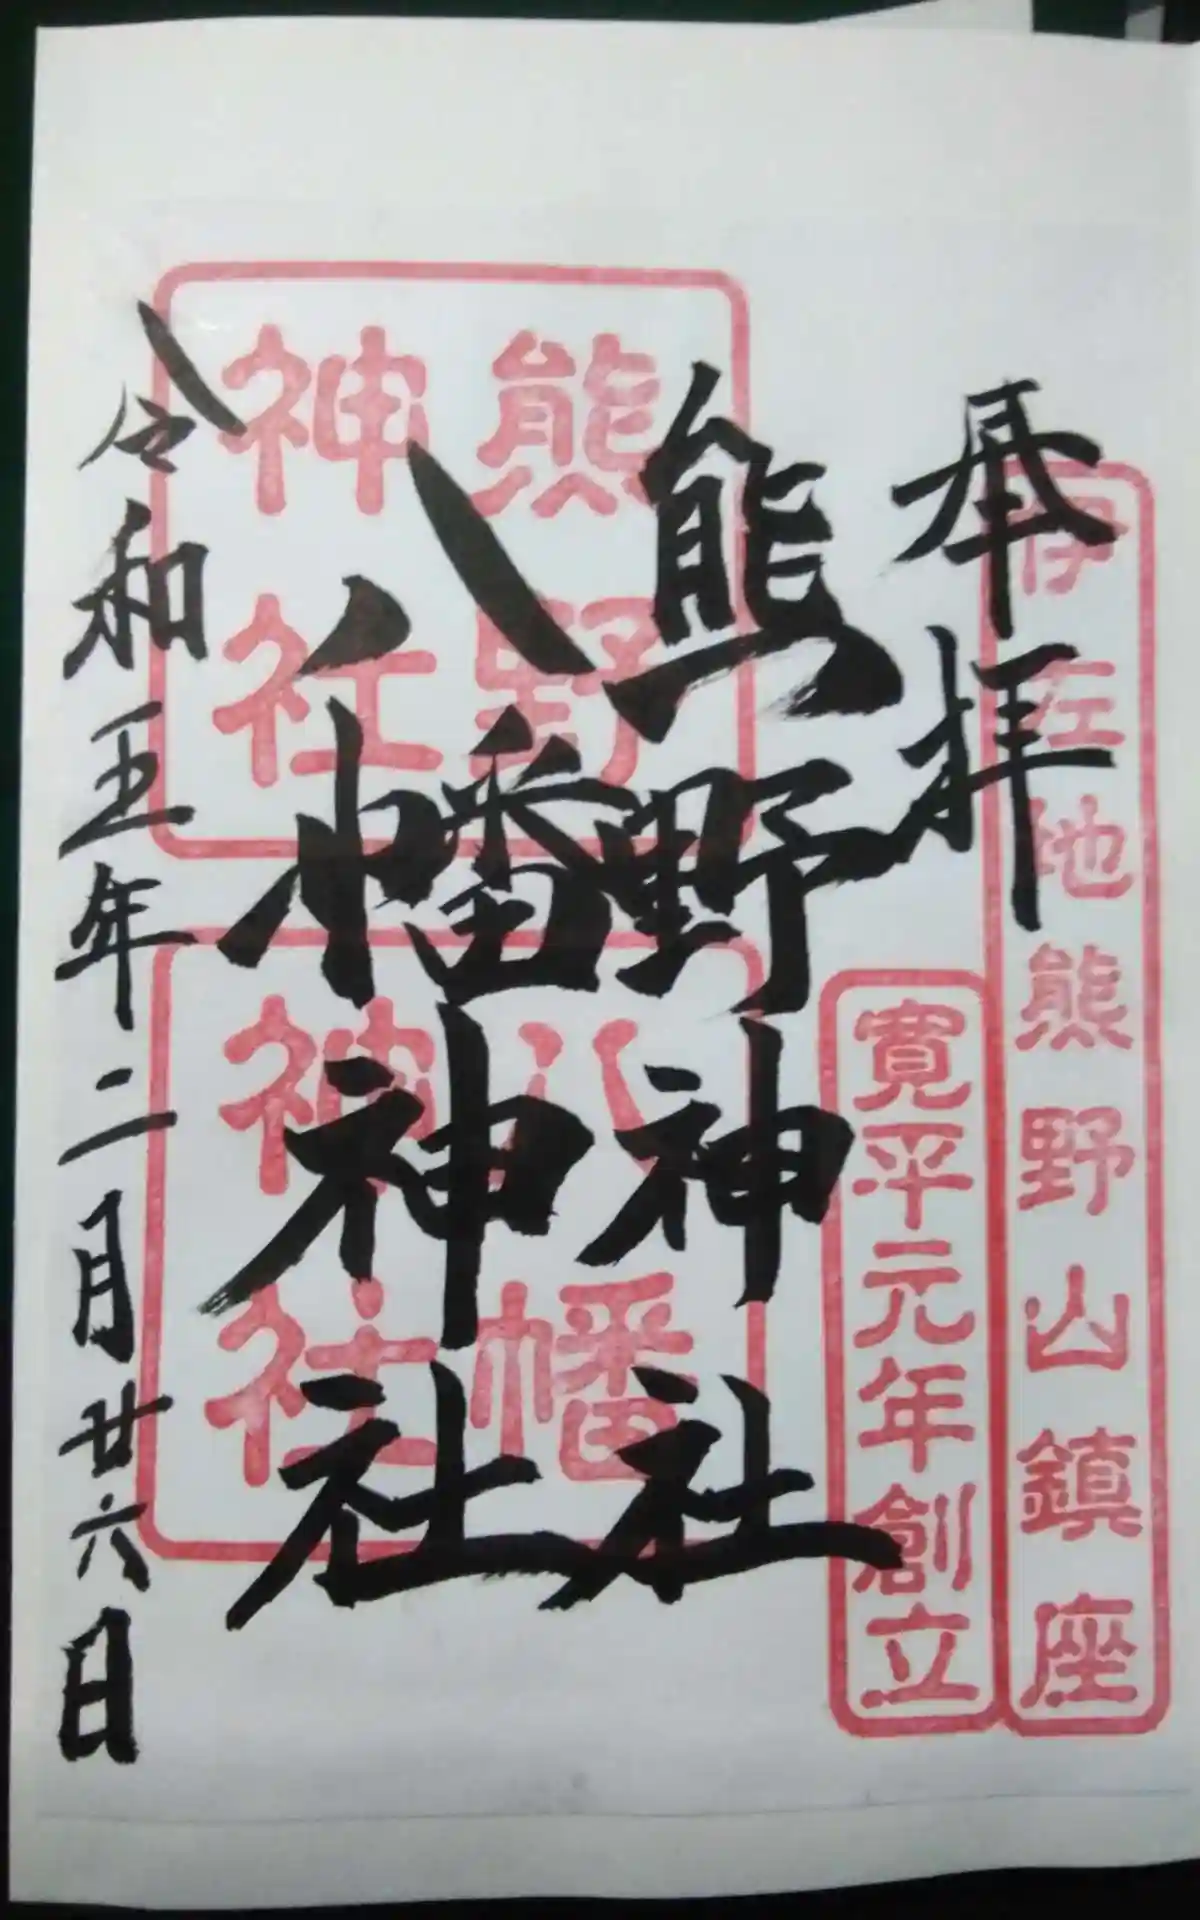 奉拝
伊佐地熊野山鎮座
寛平元年創立
熊野神社
八幡神社
熊野
神社
八幡
神社
令和五年二月廿六日